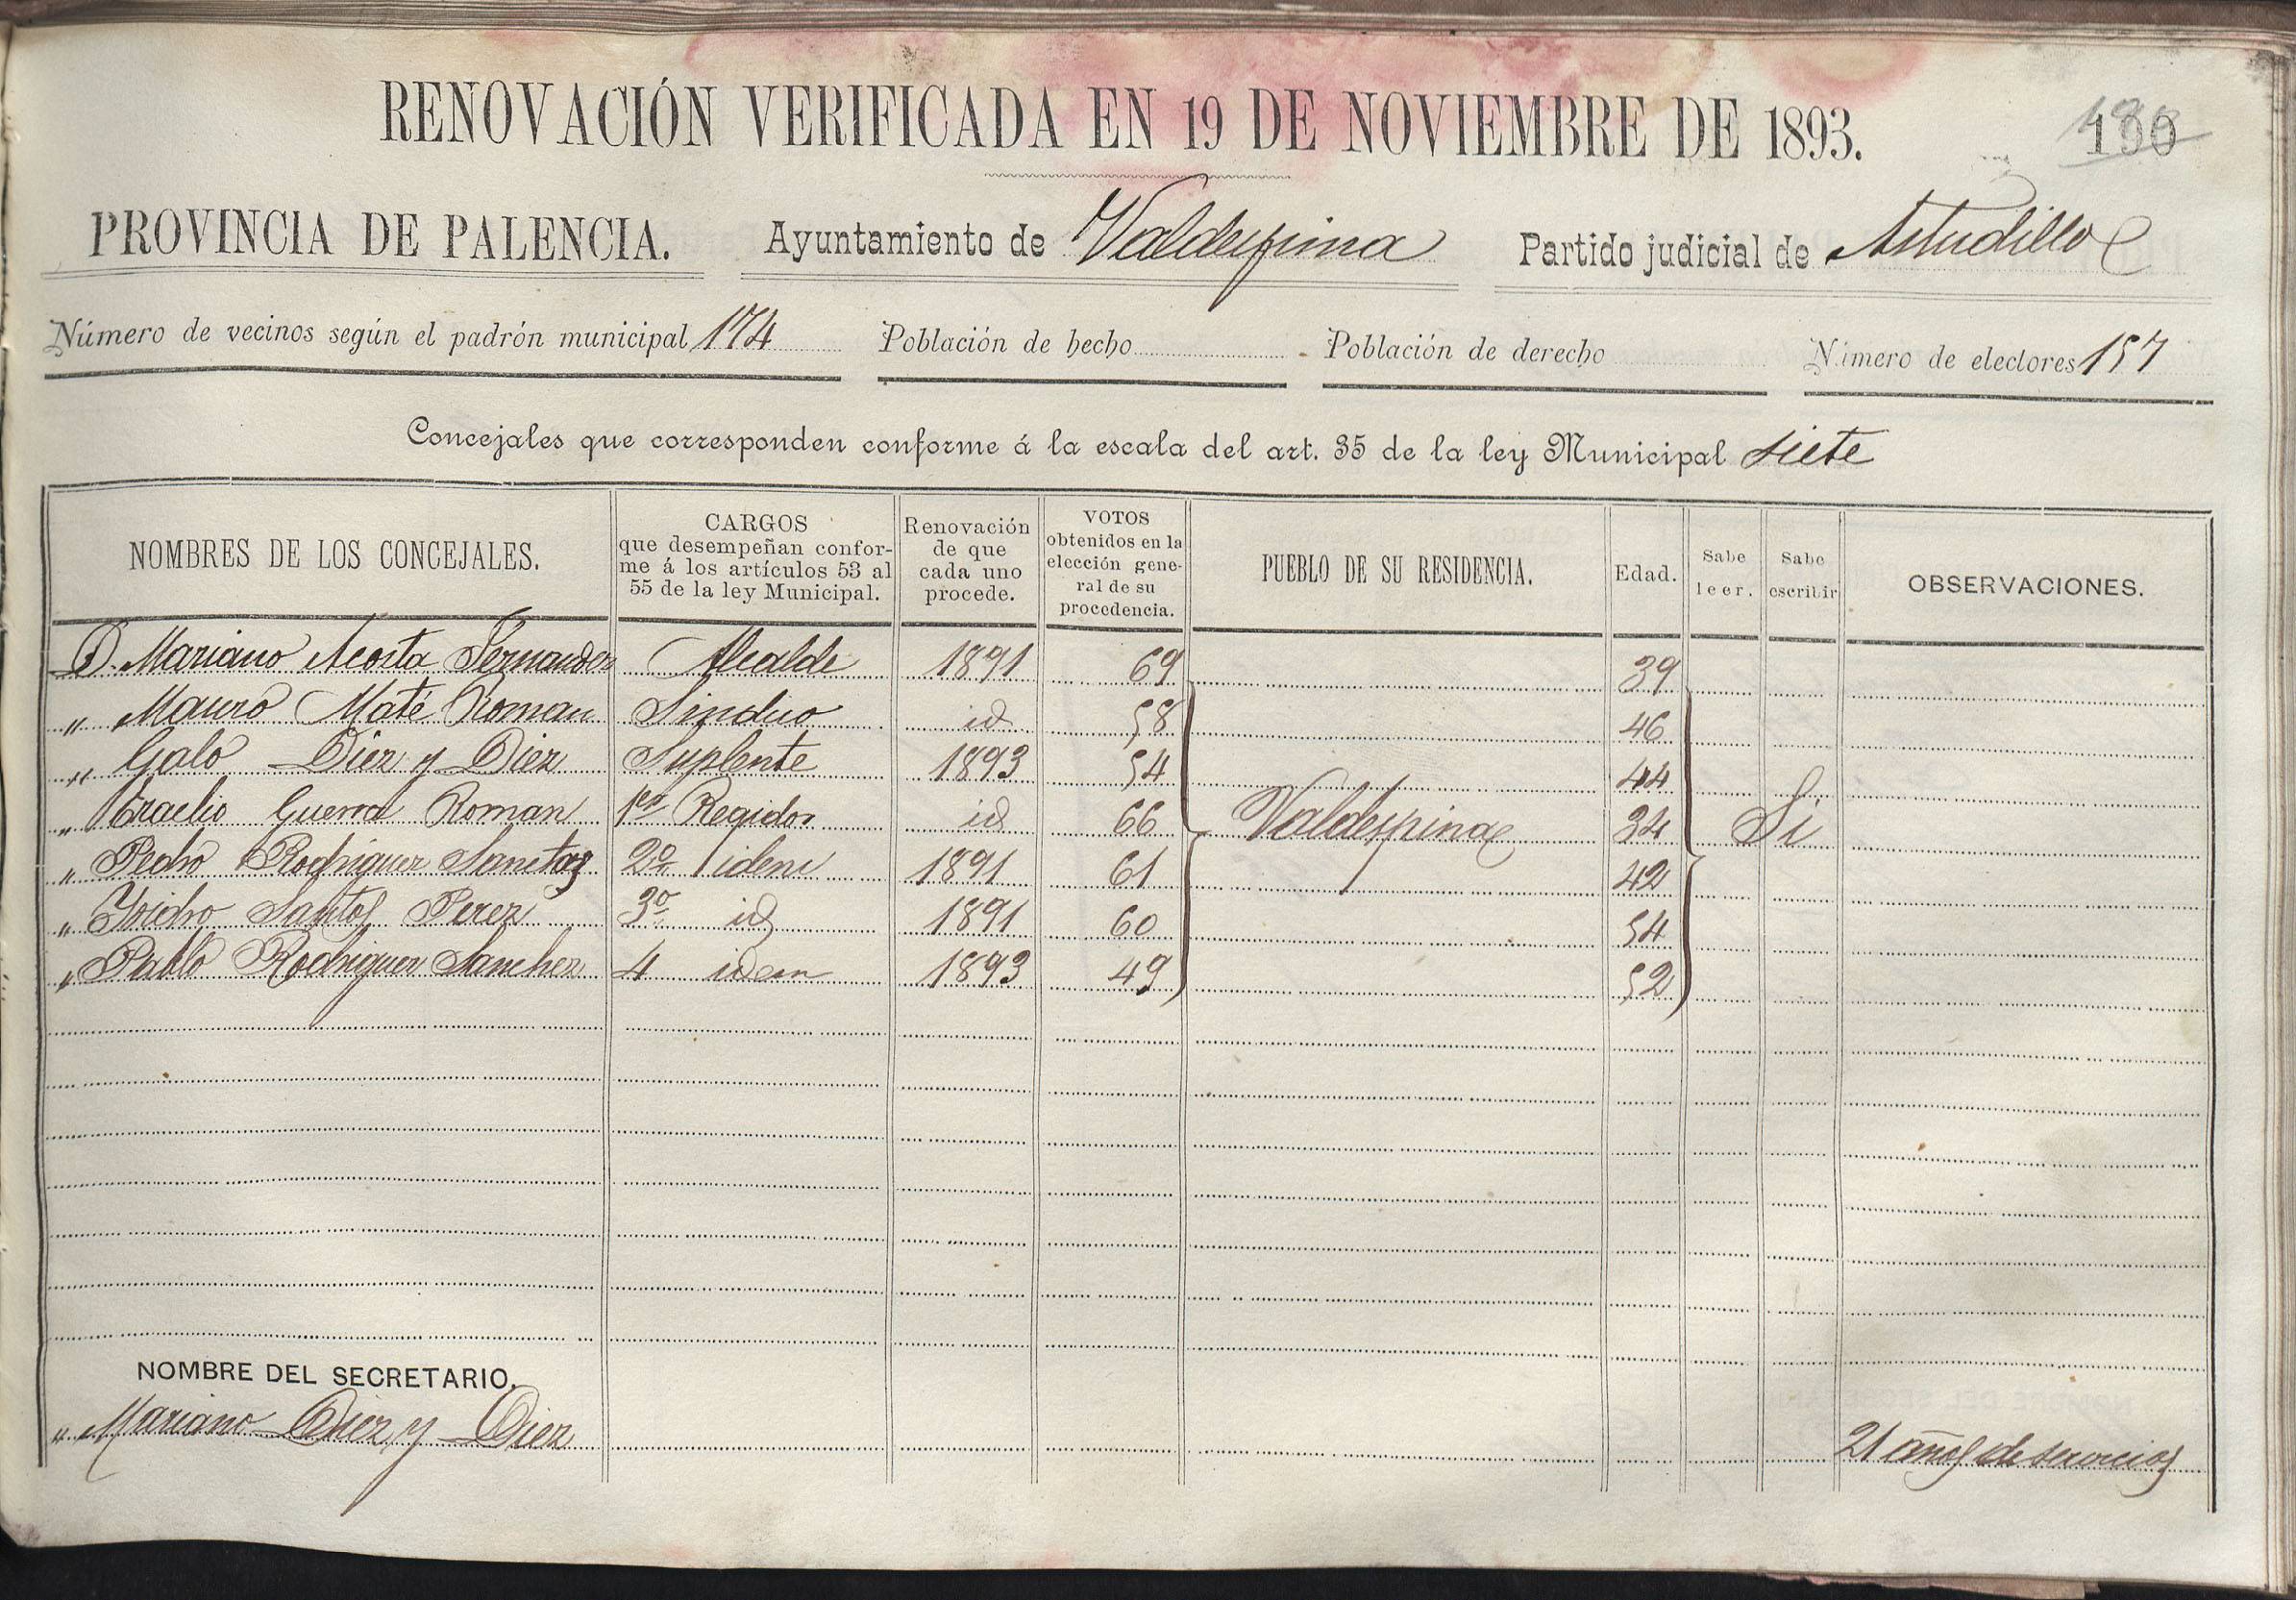 RENOVACIÓN VERIFICADA EN 19 DE NOVIEMBRE DE 1893.
190
PROVINCIA DE PALENCIA. Ayuntamiento de Valdespina Partido judicial de Astudillo
Número de vecinos según el padrón municipal 174 Población de hecho Población de derecho Número de electores 157
Concejales que corresponden conforme á la escala del art. 35 de la ley Municipal siete
NOMBRES DE LOS CONCEJALES. CARGOS que desempeñan conforme á los artículos 53 al 55 de la ley Municipal. Renovación de que cada uno procede. VOTOS obtenidos en la elección general de su procedencia. PUEBLO DE SU RESIDENCIA. Edad. Sabe leer. Sabe escribir OBSERVACIONES.
D. Mariano Acosta Fernandez Alcalde 1891 69 39
„ Mauro Maté Roman Sindico id 58 46
„ Galo Diez y Diez Suplente 1893 54 44
„ Eraclio Guerra Roman 1er Regidor id 66 Valdespina 34 Si
„ Pedro Rodriguez Santos 2º idem 1891 61 42
„ Ysidro Santos Perez 3º id 1891 60 54
„ Pablo Rodriguez Sanchez 4 idem 1893 49 52
NOMBRE DEL SECRETARIO.
„ Mariano Diez y Diez 21 años de servicios